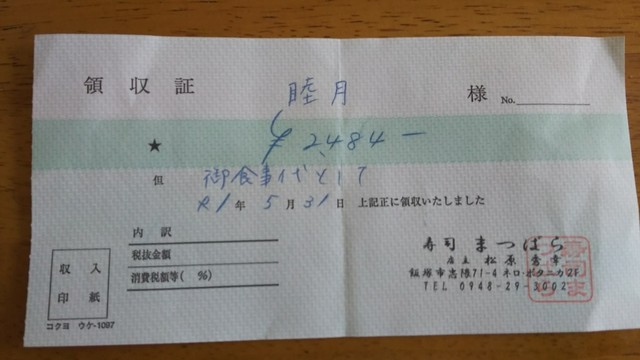 領収証 睦月 様 No.
★ ¥2,484-
但 御食事代として
R1年 5月 31日 上記正に領収いたしました
内訳
税抜金額
消費税額等( %)
収入
印紙
コクヨ ウケ-1097
寿司 まつばら
店主 松原
飯塚市忠隈71-4 ネロ・ボタニカ2F
TEL 0948-29-3002